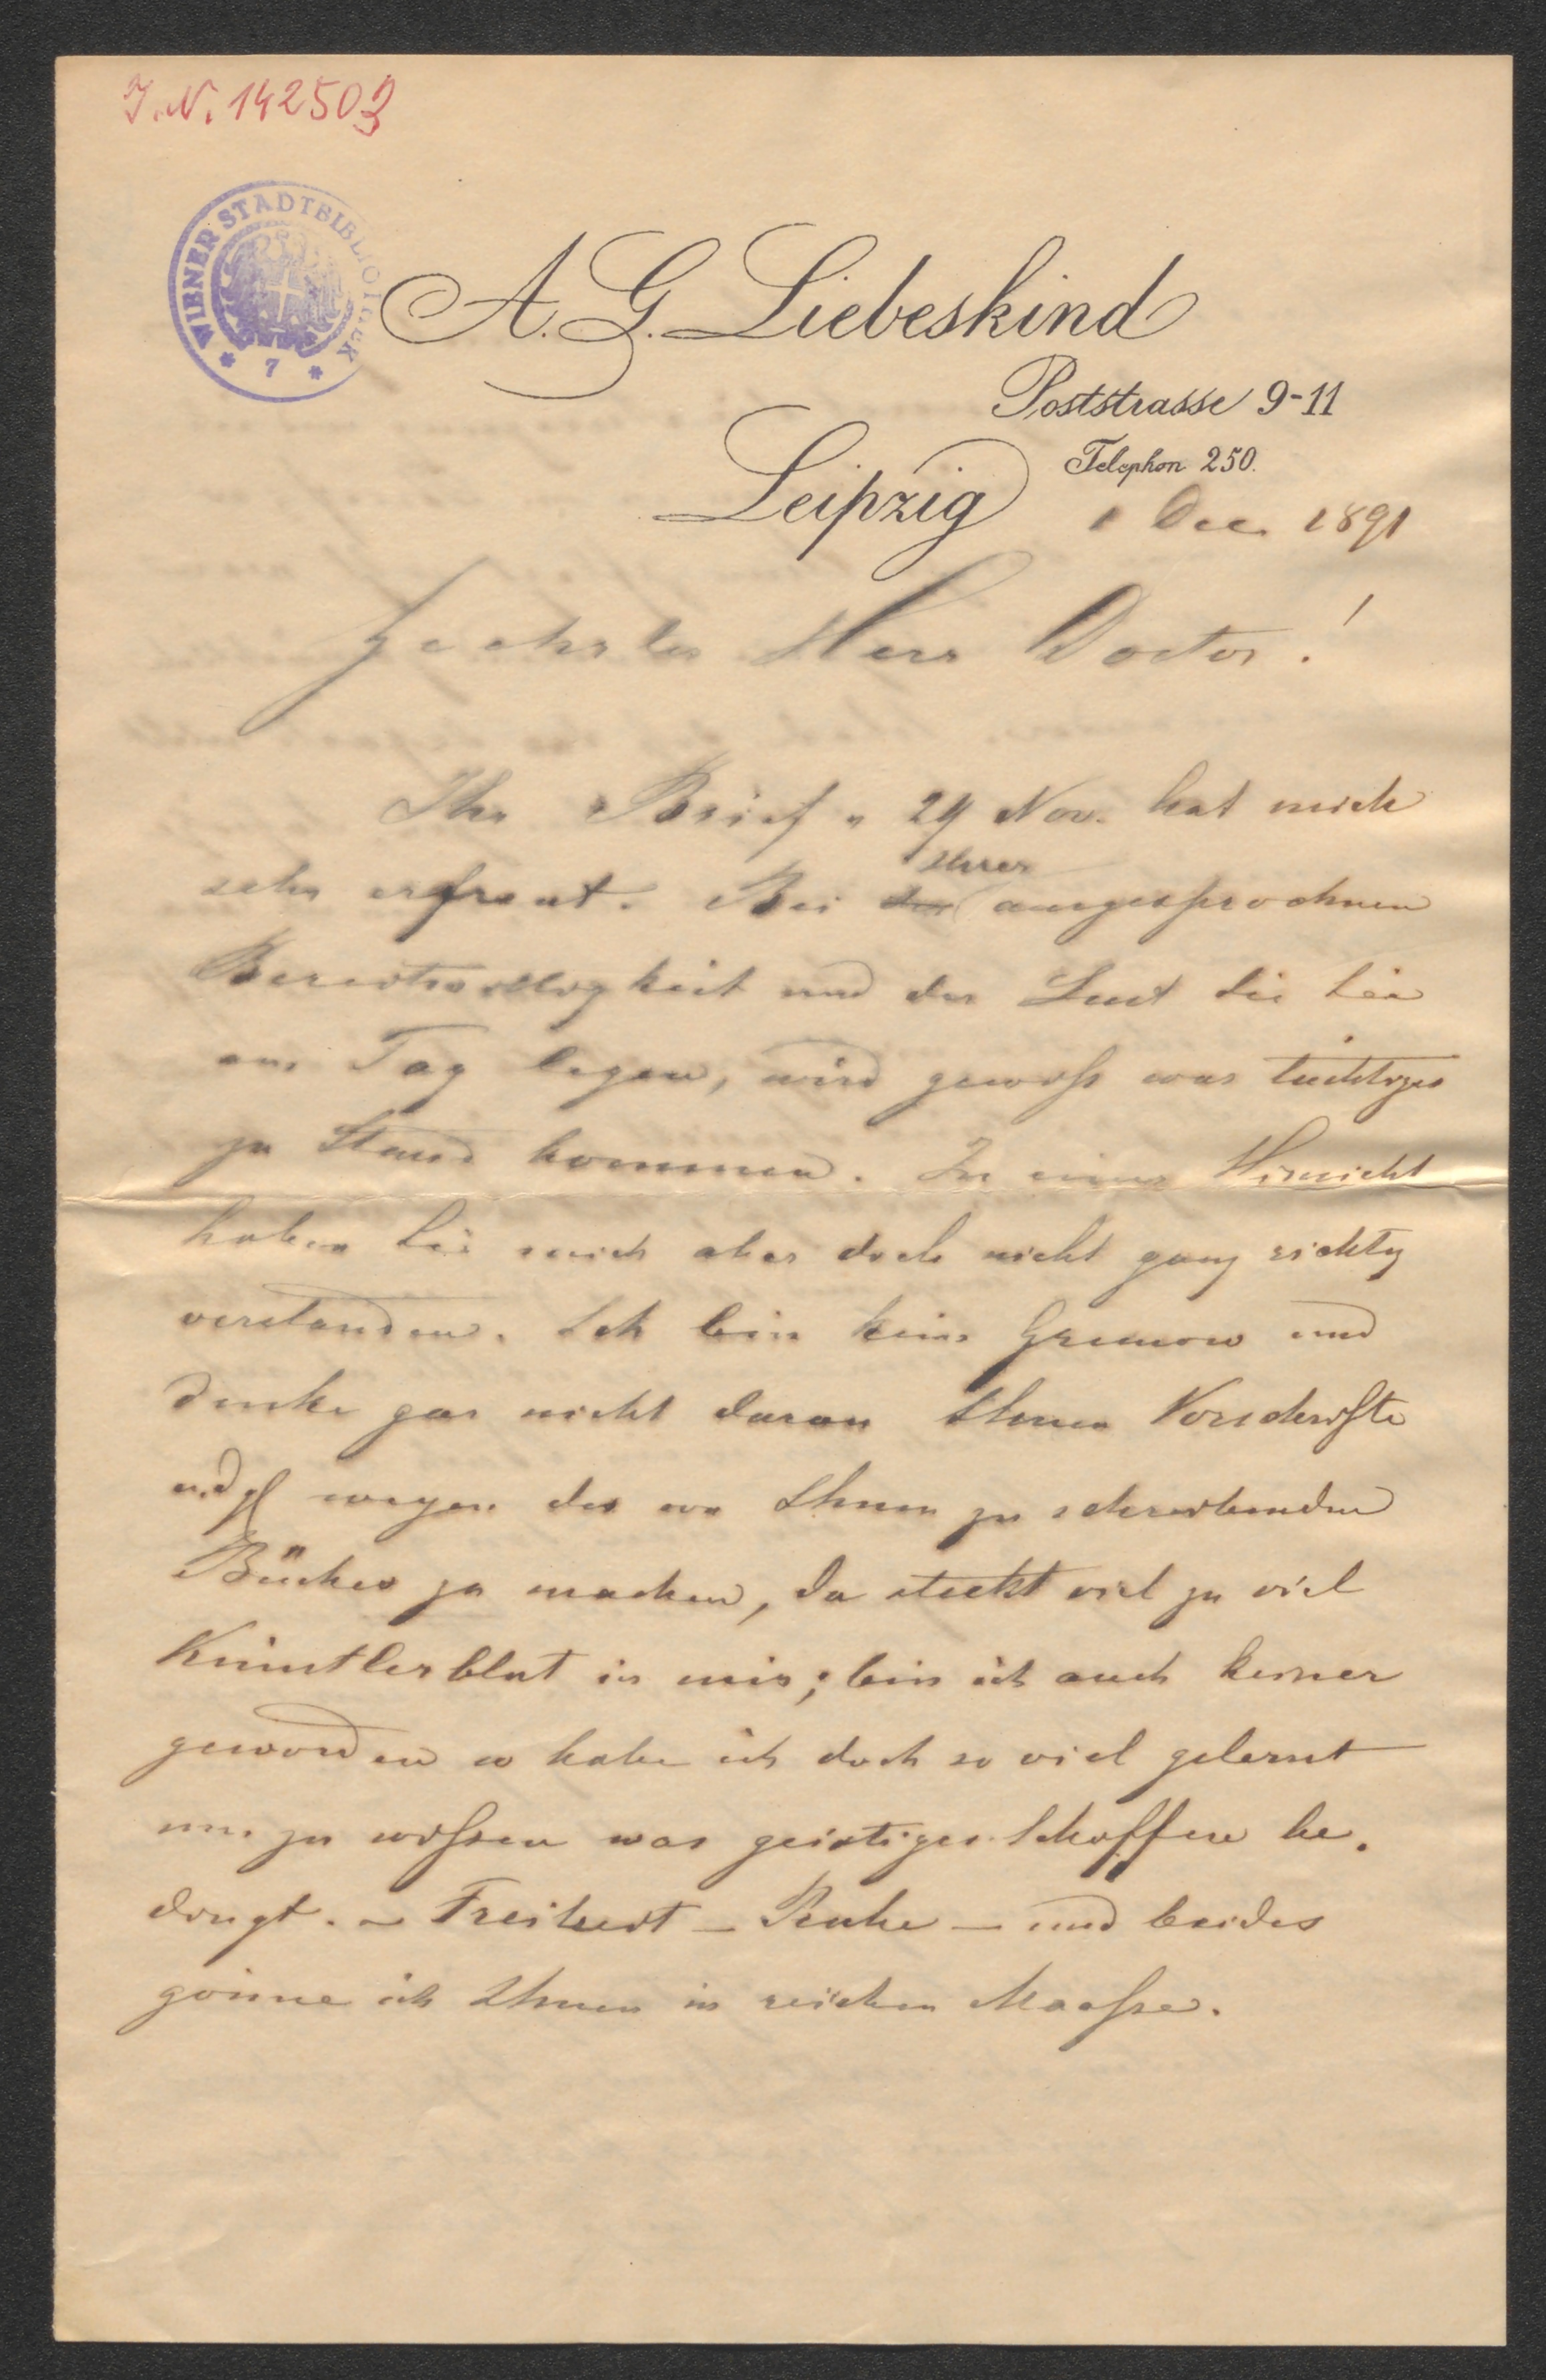 J. N. 142503
WIENER STADTBIBLIOTHEK
* 7 *
A. G. Liebeskind
Poststrasse 9-11
Telephon 250.
Leipzig
1 Dec 1891
Geehrter Herr Doctor!
Ihr Brief v 29 Nov. hat mich
Ihrer
sehr erfreut. Bei der ausgesprochnen
Bereitwilligkeit und der Lust die Sie
am Tag legen, wird gewiß was tüchtiges
zu Stand kommen. In einer Hinsicht
haben Sie mich aber doch nicht ganz richtig
verstanden. Ich bin kein Grunow und
denke gar nicht daran Ihnen Vorschrifte
u.dgl wegen des von Ihnen zu schreibenden
Buches zu machen, da steckt viel zu viel
Künstlerblut in mir; bin ich auch keiner
geworden so habe ich doch so viel gelernt
um zu wißen was geistiges Schaffen be-
dingt. – Freiheit – Ruhe – und beides
gönne ich Ihnen in reichen Maaße.